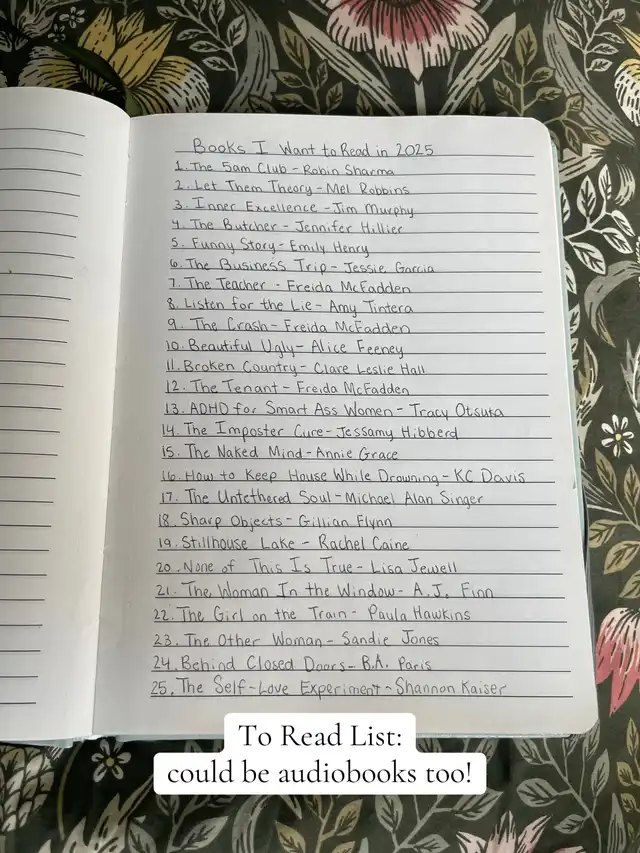 Books I Want to Read in 2025
1. The 5am Club - Robin Sharma
2. Let Them Theory - Mel Robbins
3. Inner Excellence - Jim Murphy
4. The Butcher - Jennifer Hillier
5. Funny Story - Emily Henry
6. The Business Trip - Jessie Garcia
7. The Teacher - Freida McFadden
8. Listen for the Lie - Amy Tintera
9. The Crash - Freida McFadden
10. Beautiful Ugly - Alice Feeney
11. Broken Country - Clare Leslie Hall
12. The Tenant - Freida McFadden
13. ADHD for Smart Ass Women - Tracy Otsuka
14. The Imposter Cure - Jessamy Hibberd
15. The Naked Mind - Annie Grace
16. How to Keep House While Drowning - KC Davis
17. The Untethered Soul - Michael Alan Singer
18. Sharp Objects - Gillian Flynn
19. Stillhouse Lake - Rachel Caine
20. None of This Is True - Lisa Jewell
21. The Woman In the Window - A.J. Finn
22. The Girl on the Train - Paula Hawkins
23. The Other Woman - Sandie Jones
24. Behind Closed Doors - B.A. Paris
25. The Self-Love Experiment - Shannon Kaiser
To Read List:
could be audiobooks too!